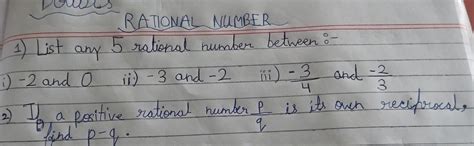 Doubts
RATIONAL NUMBER
1) List any 5 rational number between :-
i) -2 and 0 ii) -3 and -2 iii) -3/4 and -2/3
2) If a positive rational number p/q is its own reciprocal,
find p-q.